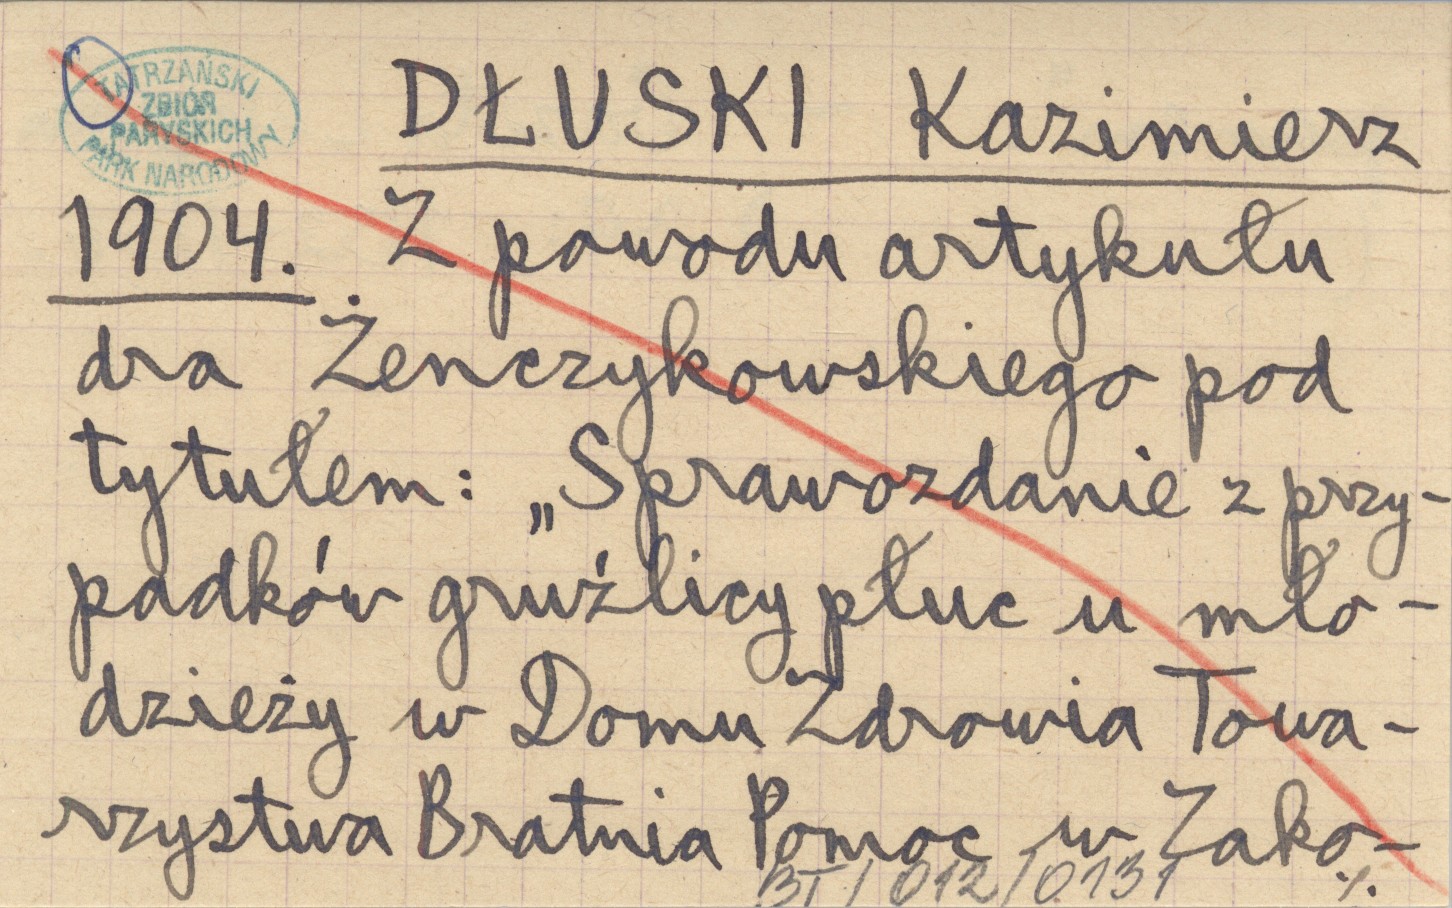 TATRZAŃSKI
ZBIÓR
PARYSKICH
PARK NARODOWY
DŁUSKI Kazimierz
1904. Z powodu artykułu
dra Żenczykowskiego pod
tytułem: „Sprawozdanie z przy-
padków gruźlicy płuc u mło-
dzieży w Domu Zdrowia Towa-
rzystwa Bratnia Pomoc w Zako-
BT/012/0131 ./.